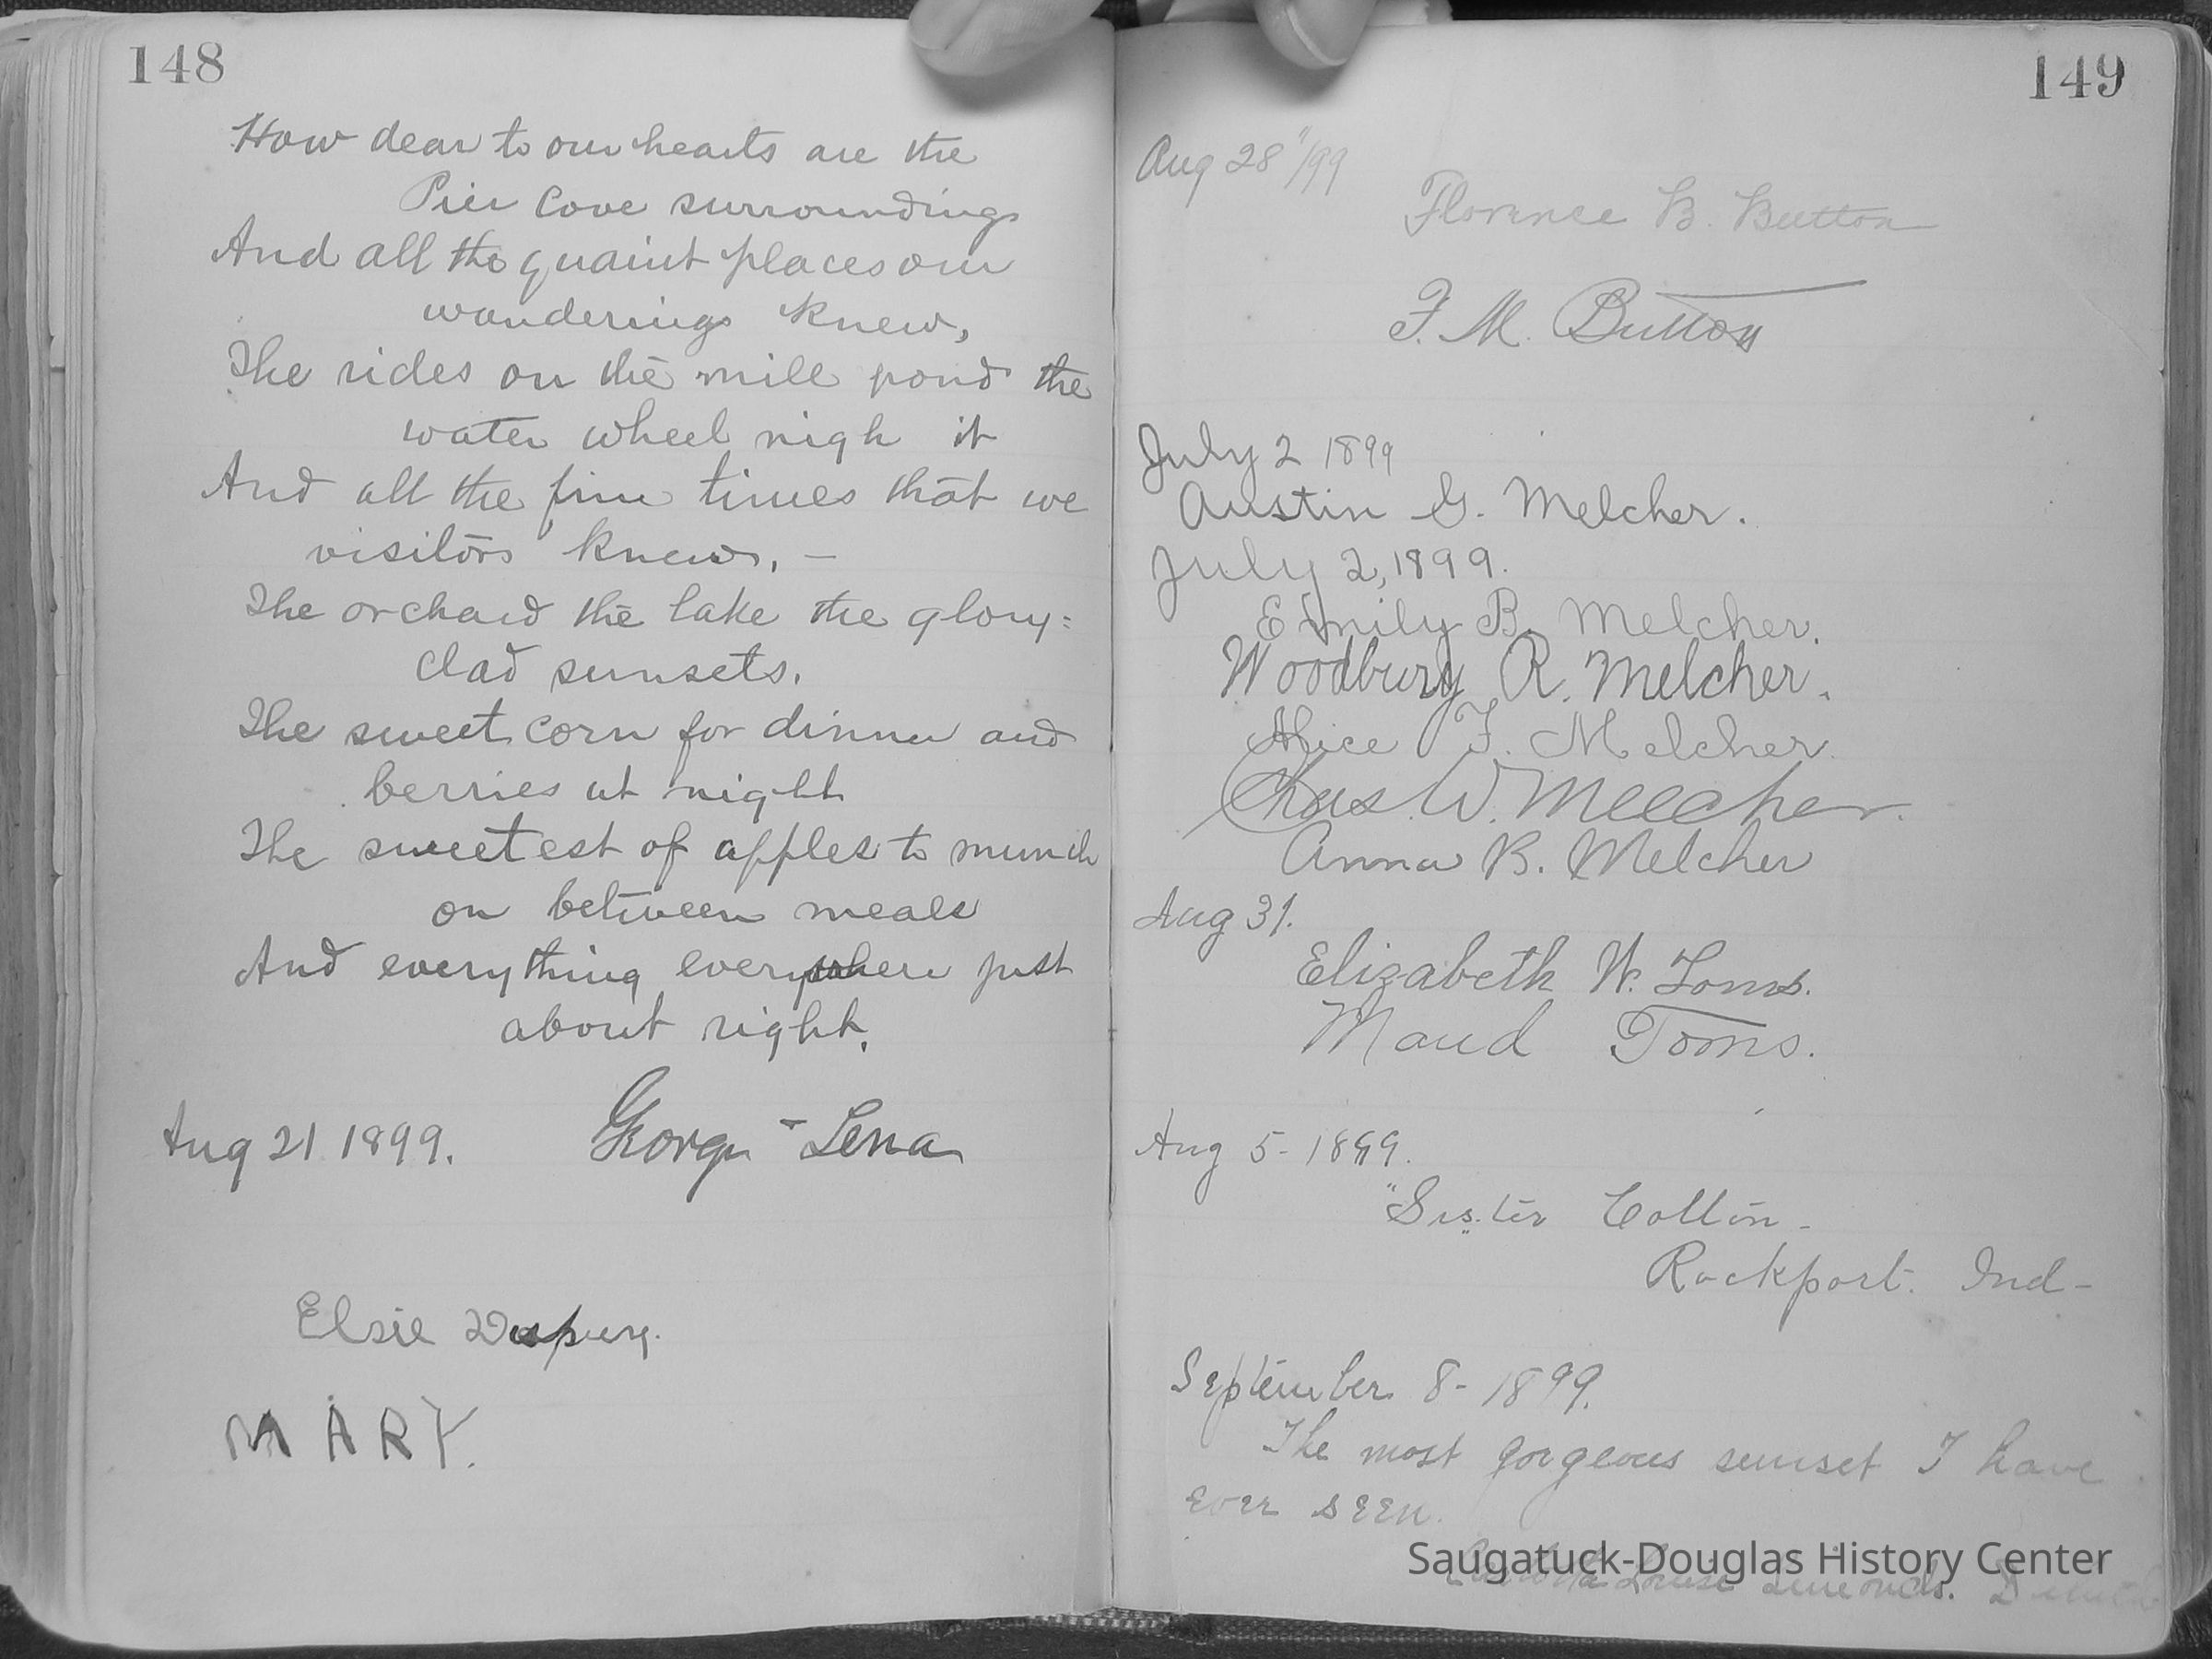 148
How dear to our hearts are the
Pier Cove surroundings
And all the quaint places our
wanderings knew,
The rides on the mill pond the
water wheel nigh it
And all the fine times that we
visitors knew, –
The orchard the lake the glory=
clad sunsets.
The sweet corn for dinner and
berries at night
The sweetest of apples to munch
on between meals
And everything everywhere just
about right.
Aug 21 1899. George - Lena
Elsie
MARY.
149
Aug 28"/99
Florence B. Button
F. M. Button
July 2 1899
Austin G. Melcher.
July 2, 1899.
Emily B. Melcher.
Woodbury R. Melcher.
Alice F. Melcher.
Chas. W. Melcher.
Anna B. Melcher
Aug 31.
Elizabeth W. Toms.
Maud Toms.
Aug 5 - 1899.
"Sister Cotton -
Rockport. Ind -
September 8 - 1899.
The most gorgeous sunset I have
ever seen.
Saugatuck-Douglas History Center
Louise